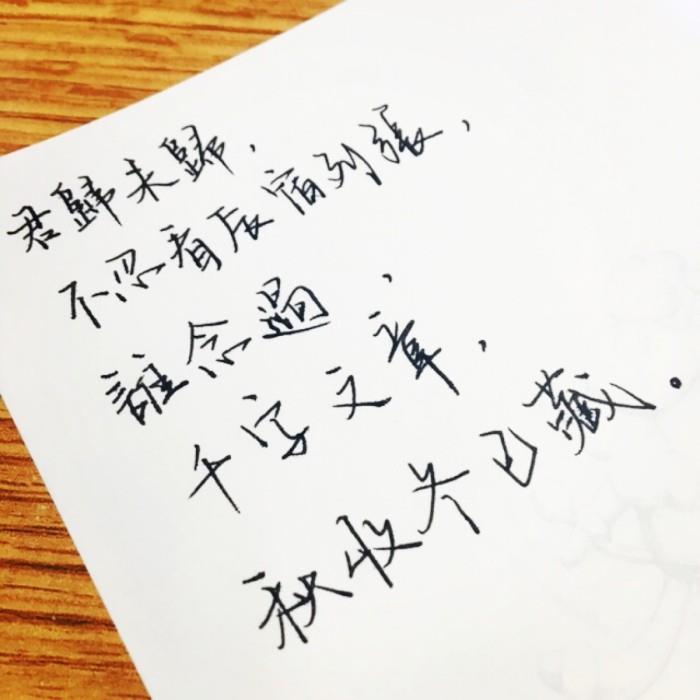 君歸未歸，
不忍看辰宿列張，
誰念過，
千字文章，
秋收冬已藏。